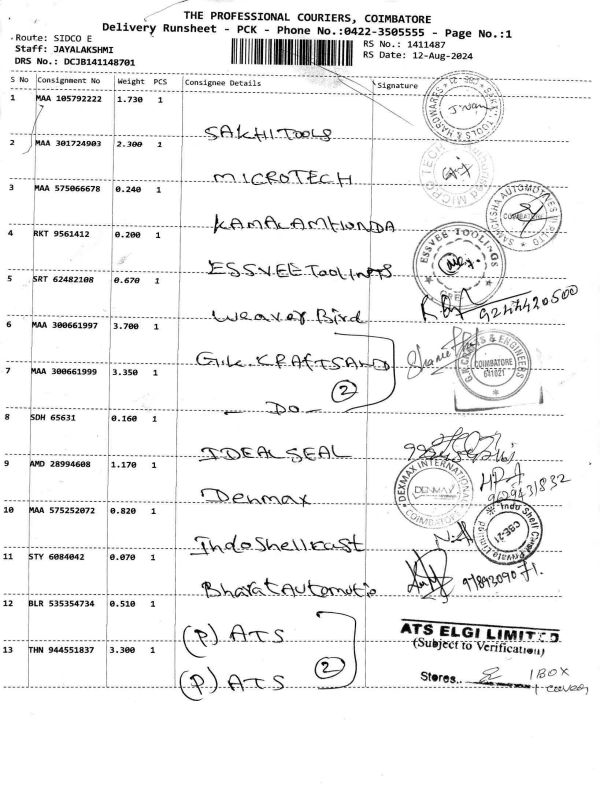 THE PROFESSIONAL COURIERS, COIMBATORE
Delivery Runsheet - PCK - Phone No.:0422-3505555 - Page No.:1
Route: SIDCO E
Staff: JAYALAKSHMI
DRS No.: DCJB141148701
RS No.: 1411487
RS Date: 12-Aug-2024
S No Consignment No Weight PCS Consignee Details Signature
1 MAA 105792222 1.730 1 SAKHI TOOLS
TOOLS & HARDWARES
2 MAA 301724903 2.300 1 MICROTECH
3 MAA 575066678 0.240 1 KAMALAMHUNDA
COIMBATORE
4 RKT 9561412 0.200 1 ESSVEE TOOLINGS
ESSVEE TOOLINGS
5 SRT 62482108 0.670 1 Weaver Bird
9244420500
6 MAA 300661997 3.700 1 G.K. KRAFTS AND
7 MAA 300661999 3.350 1 - DO - 2
& ENGINEERS
COIMBATORE
641021
8 SDH 65631 0.160 1 IDEAL SEAL
9 AMD 28994608 1.170 1 Denmax
DEXMAX INTERNATIONAL
DENMAX
COIMBATORE
9629431832
10 MAA 575252072 0.820 1 IndoShellcast
Indo Shell Cast Private Limited
CBE-21
11 STY 6084042 0.070 1 Bharat Automotio
12 BLR 535354734 0.510 1 (P) ATS
ATS ELGI LIMITED
(Subject to Verification)
13 THN 944551837 3.300 1 (P) ATS 2
Stores.. 1 BOX
1 cover